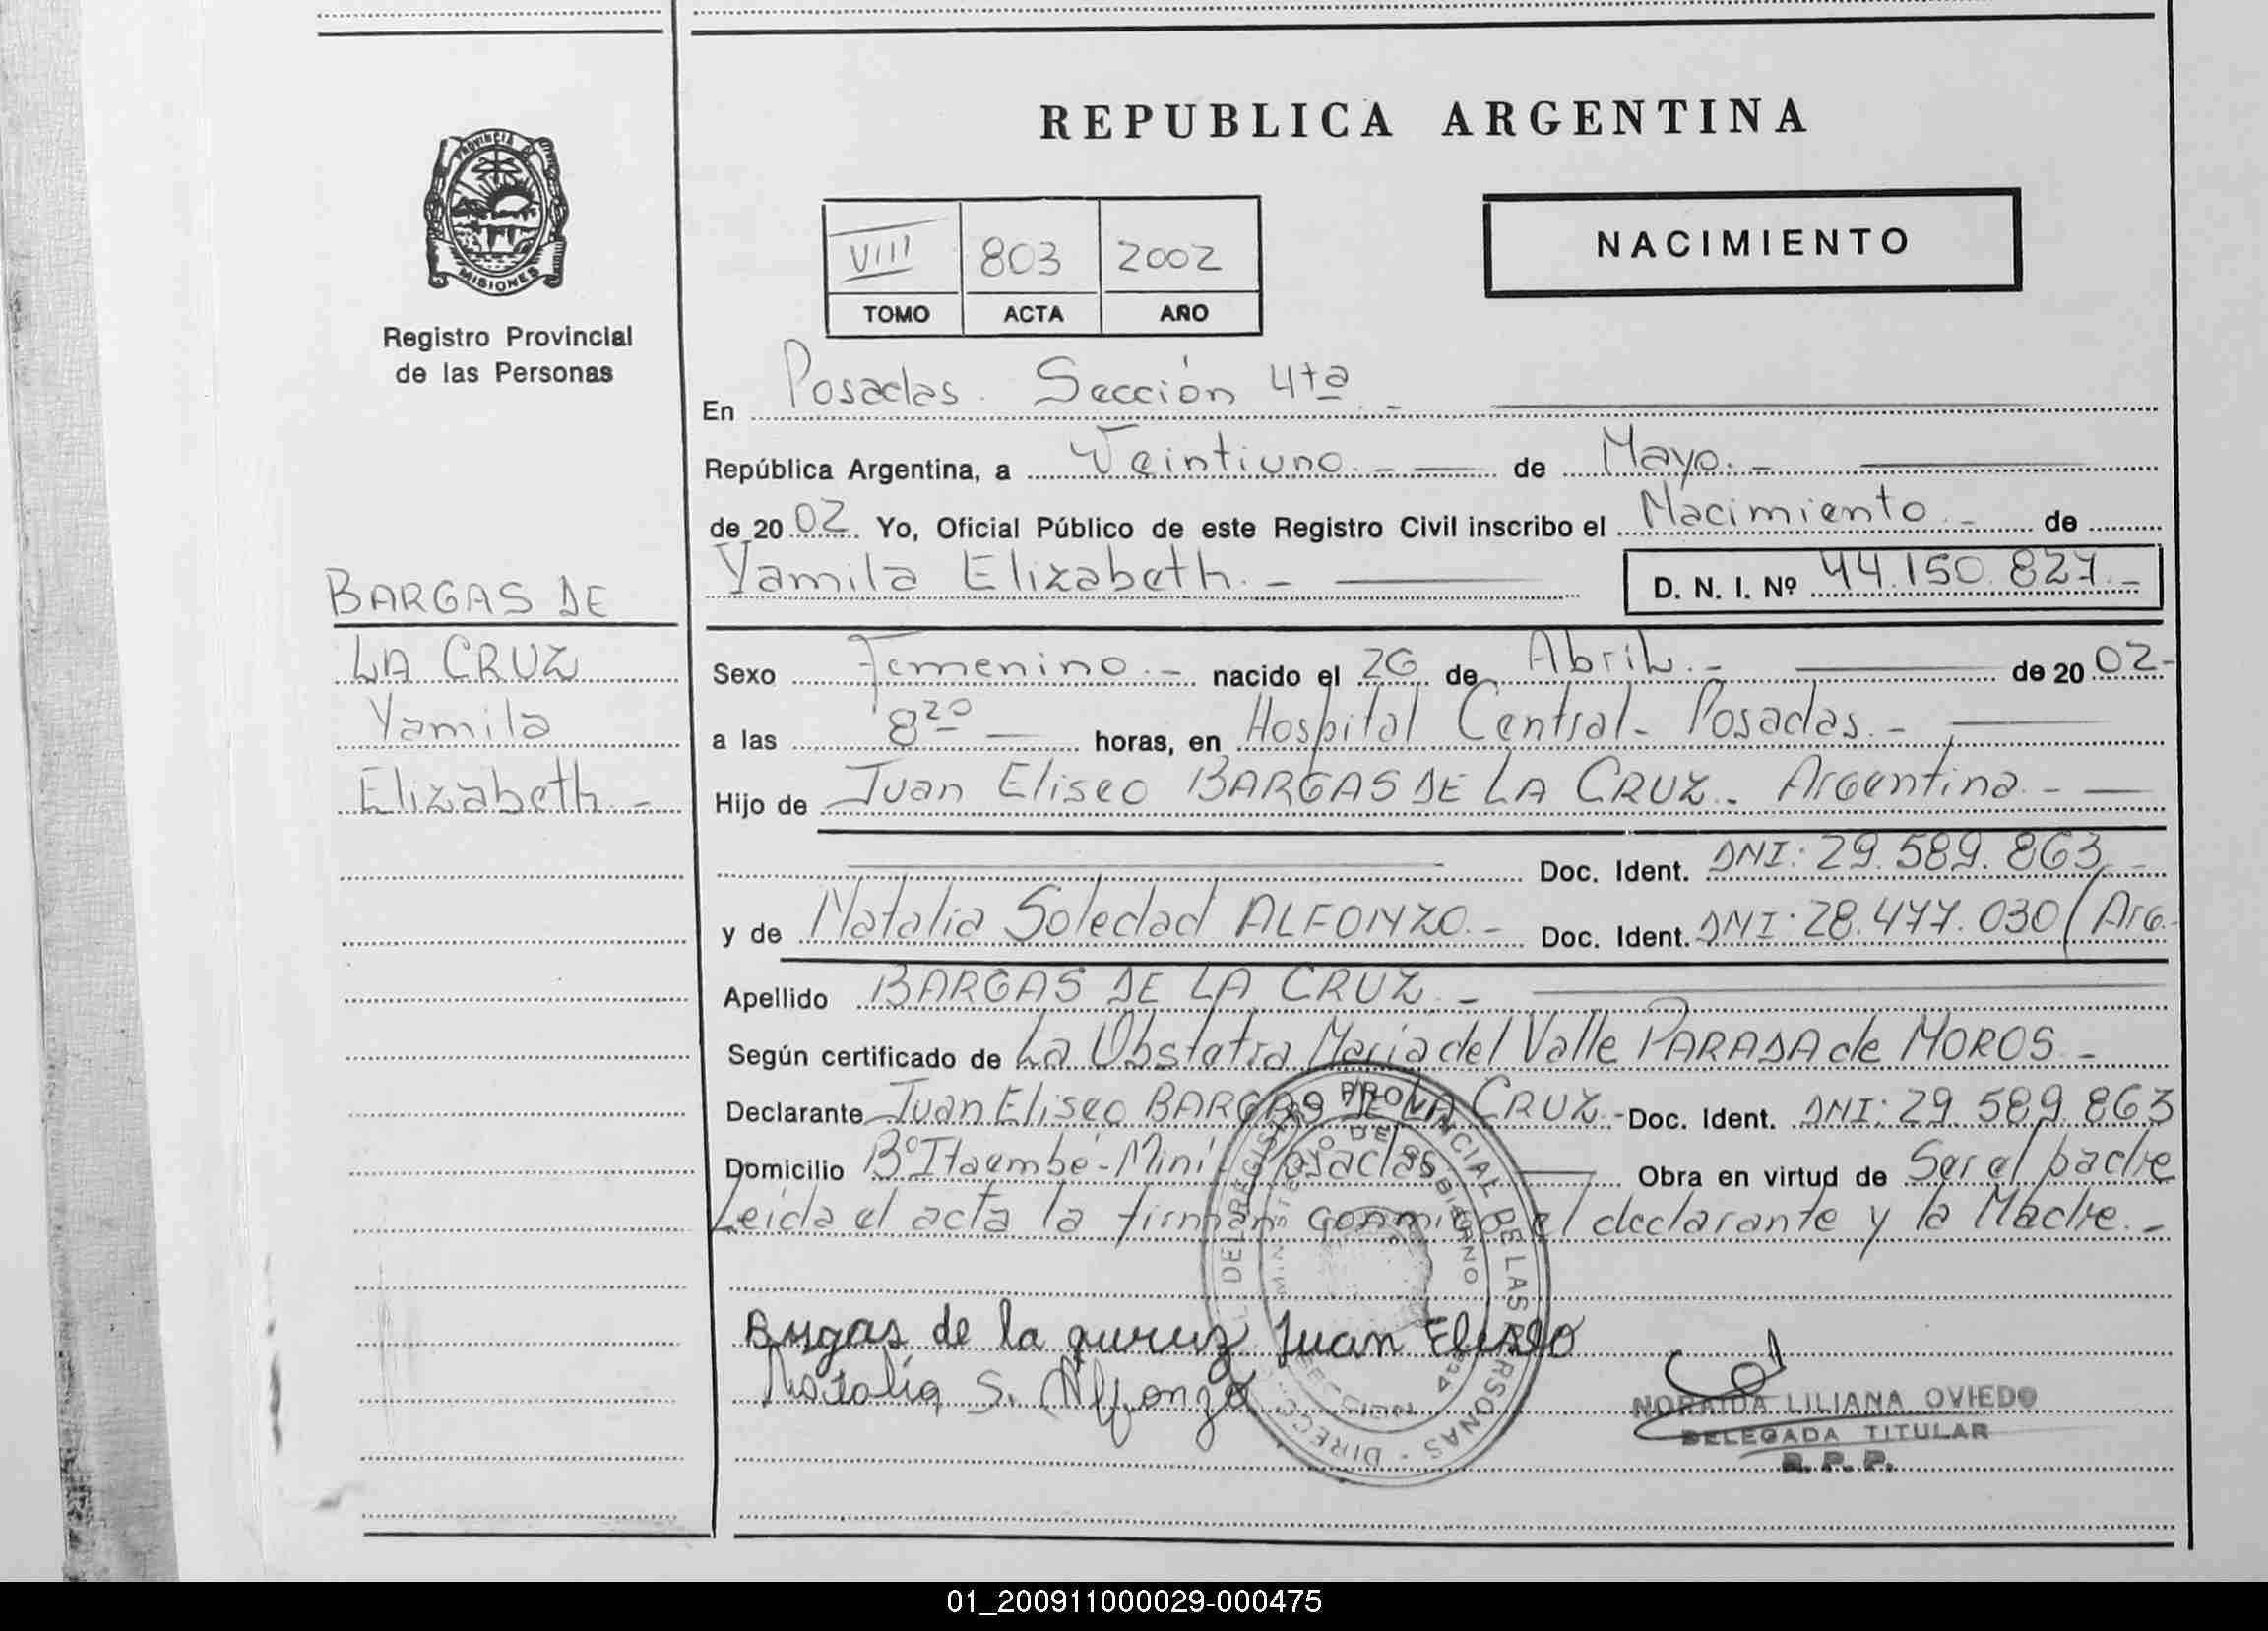 REPUBLICA ARGENTINA
PROVINCIA DE
MISIONES
Registro Provincial
de las Personas
VIII 803 2002
TOMO ACTA AÑO
NACIMIENTO
En Posadas. Sección 4ta. -
República Argentina, a Veintiuno. - de Mayo. -
de 2002 Yo, Oficial Público de este Registro Civil inscribo el Nacimiento - de
Yamila Elizabeth. - D. N. I. Nº 44.150.827. -
BARGAS DE
LA CRUZ
Yamila
Elizabeth. -
Sexo Femenino. - nacido el 26 de Abril. - de 2002-
a las 8 20 horas, en Hospital Central - Posadas. -
Hijo de Juan Eliseo BARGAS DE LA CRUZ - Argentina. -
Doc. Ident. DNI: 29.589.863 -
y de Natalia Soledad ALFONZO. - Doc. Ident. DNI: 28.477.030 / Arg.
Apellido BARGAS DE LA CRUZ -
Según certificado de La Obstetra María del Valle PARADA de MOROS -
Declarante Juan Eliseo BARGAS DE LA CRUZ - Doc. Ident. DNI: 29.589.863
Domicilio Bº Itaembé-Miní - Posadas Obra en virtud de Ser el padre
Leida el acta la firman conmigo el declarante y la Madre. -
DIRECC. GRAL. DEL REGISTRO PROVINCIAL DE LAS PERSONAS
MINISTERIO DE GOBIERNO
SECCION 4ta
Bargas de la quruz Juan Eliseo
Natalia S. Alfonzo
NORAIDA LILIANA OVIEDO
DELEGADA TITULAR
R. P. P.
01_200911000029-000475